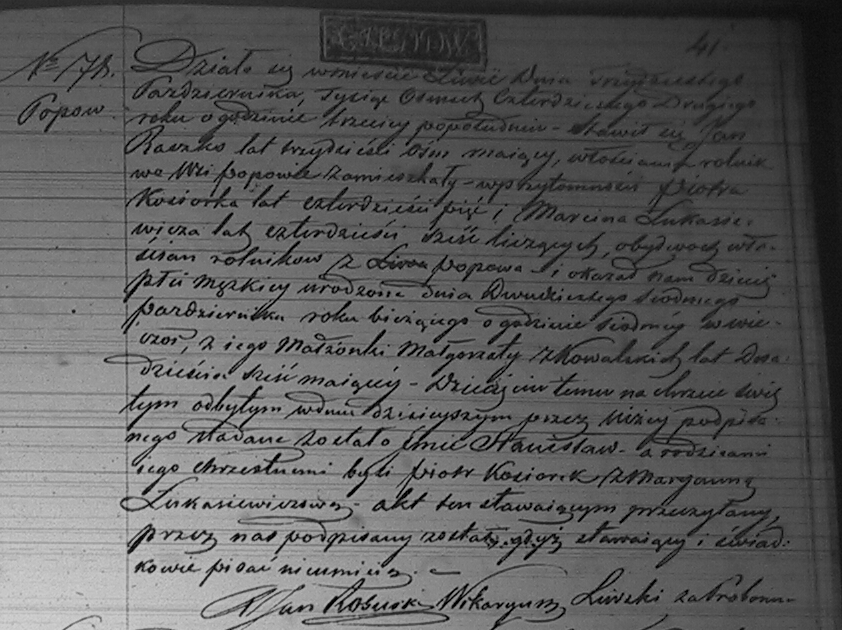 41.
№ 178.
Popow
Działo się w mieście Liwie Dnia Trzydziestego
Pazdziernika, Tysiąc Osmset Czterdziestego Drugiego
roku o godzinie trzeciey popołudniu – stawił się Jan
Raczko lat trzydzieści ośm maiący, włościanin rolnik
we Wsi popowie zamieszkały – w przytomności piotra
Kosiorka lat czterdzieści pięć i Marcina Lukasie-
wicza lat czterdzieści sześć liczących, obydwoch wło-
ścian rolnikow z popowa – i okazał nam dziecię
płci męzkiey urodzone dnia Dwudziestego siodmego
pazdziernika roku bieżącego o godzinie siodmey w wie-
czor, z iego Małżonki Małgorzaty z Kowalskich lat Dwa-
dzieścia sześć maiącey – Dziecięciu temu na chrzcie świę-
tym odbytym w dniu dzisieyszym przez niżey podpisa-
nego nadane zostało imie Stanisław – a rodzicami
iego chrzestnemi byli piotr Kosiorek z Maryanną
Lukasiewiczową – akt ten stawaiącym przeczytany,
przez nas podpisany został, gdyż stawaiący i świad-
kowie pisać nieumieią. –
X Jan Wikaryusz Liwski za Proboszcza